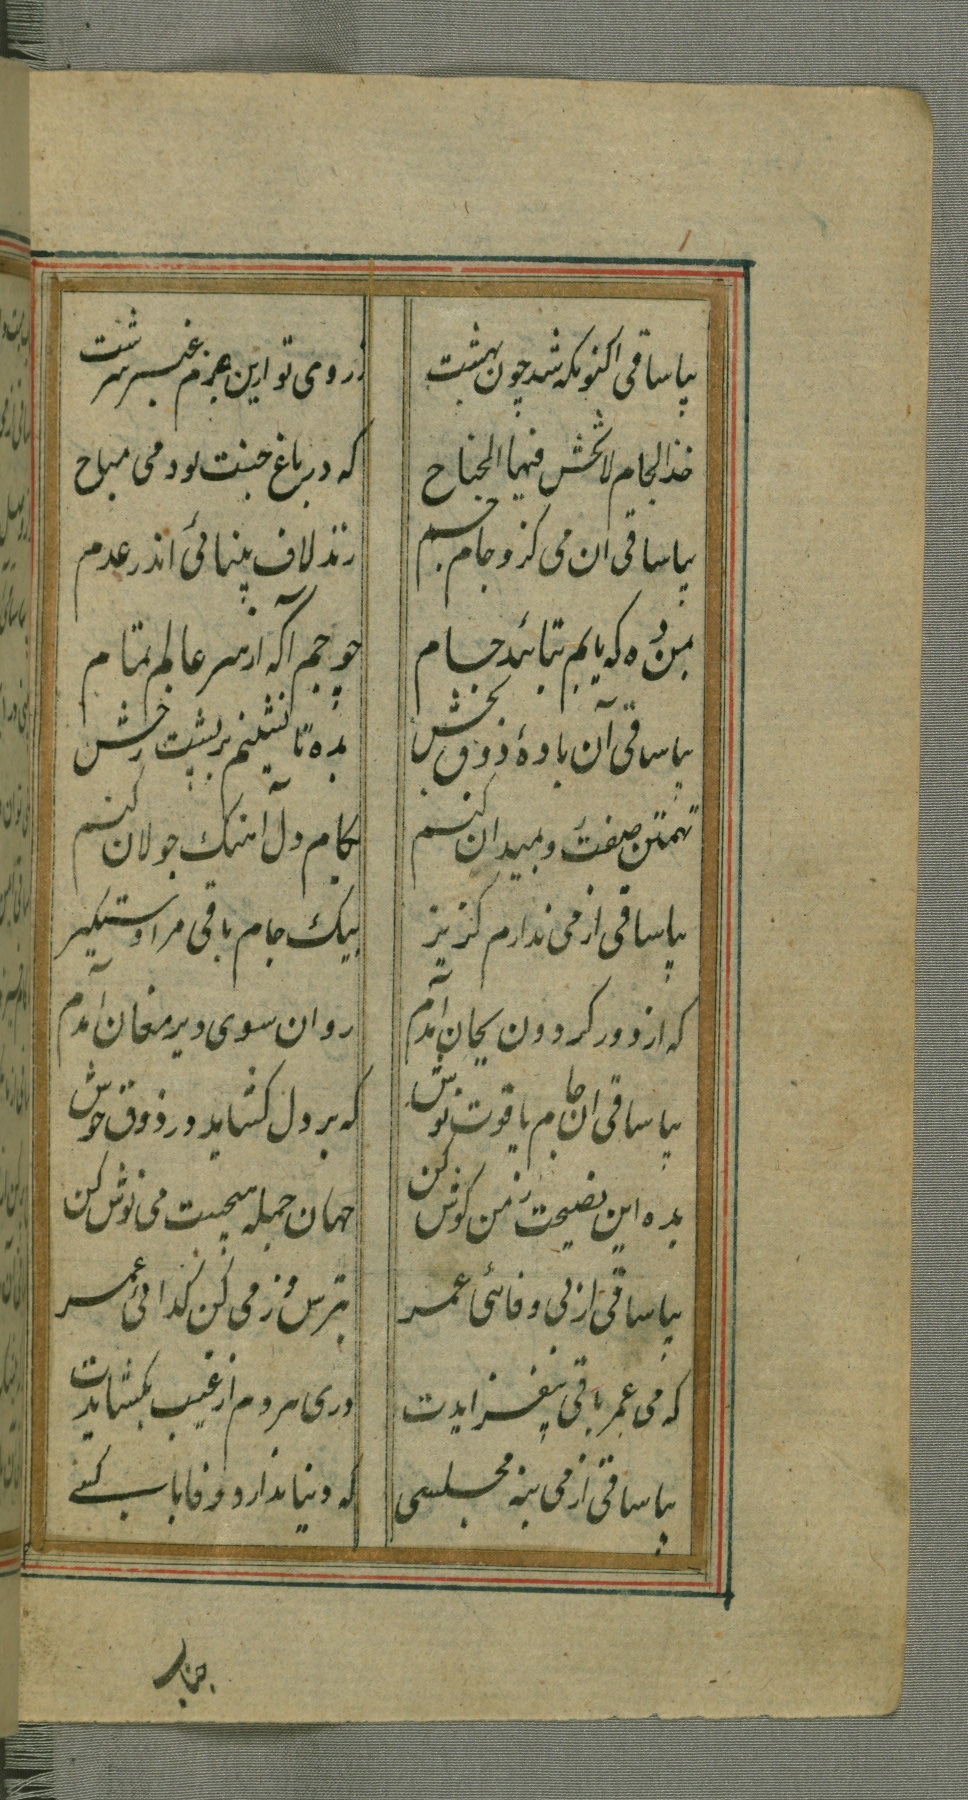 بیا ساقی اکنونکه شد چون بهشت
ز روی تو این بزم عنبر سرشت
خذ الجام لا تخش فیها الجناح
که در باغ جنت بود می مباح
بیا ساقی ان می کزو جام جم
زند لاف بینائی اندر عدم
بمن ده که یابم بتائید جام
چو جم آگه از سر عالم تمام
بیا ساقی آن بادهٔ ذوق بخش
بده تا نشینم بر پشت رخش
تهمتن صفت رو بمیدان کنم
بکام دل آهنک جولان کنم
بیا ساقی از می ندارم کزیر
بیک جام باقی مرا دستگیر
که از دور کردون بجان آمدم
روان سوی دیر مغان آمدم
بیا ساقی ان جام یاقوت نوش
که بر دل کشاید در ذوق خوش
بده این نصیحت ز من کوش کن
جهان جمله هیچست می نوش کن
بیا ساقی از بی وفائی عمر
بترس و ز می کن کدائی عمر
که می عمر باقی بیفزایدت
دری هر دم از غیب بکشایدت
بیا ساقی از می بنه مجلسی
که دنیا ندارد وفا با کسے